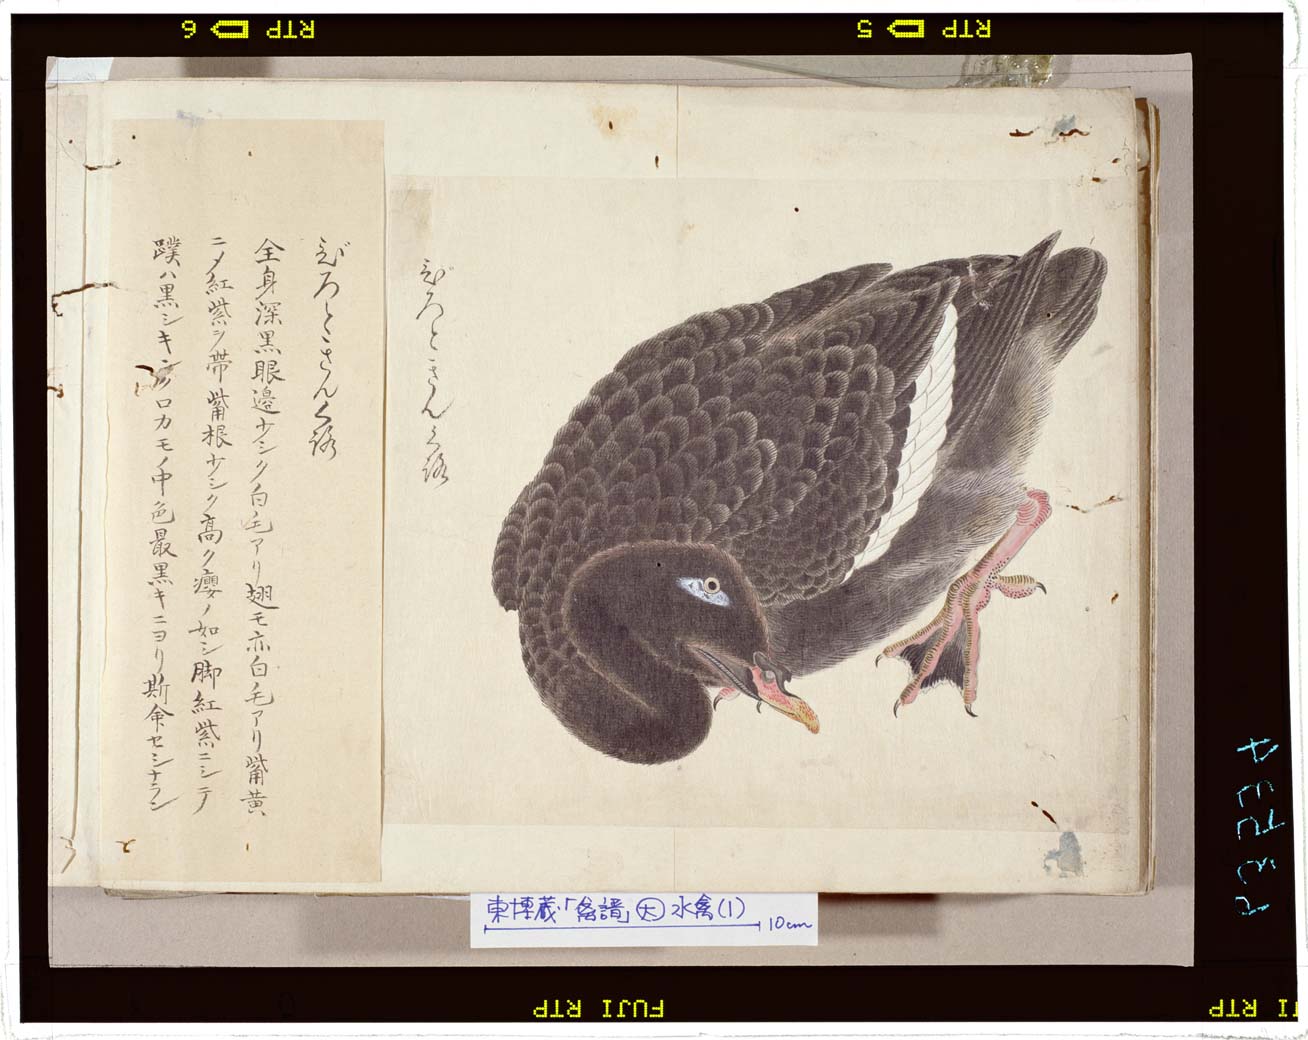 RTP 5
RTP 6
びろときんく路
びろときんく路
全身深黒眼邊少シク白毛アリ翅モ亦白毛アリ觜黄
ニメ紅紫ヲ帯觜根少シク高ク癭ノ如シ脚紅紫ニシテ
蹼ハ黒シキンクロカモノ中色最黒キニヨリ斯命セシナラン
東博蔵「禽譜」大 水禽(1)
10cm
FUJI RTP
I RTP